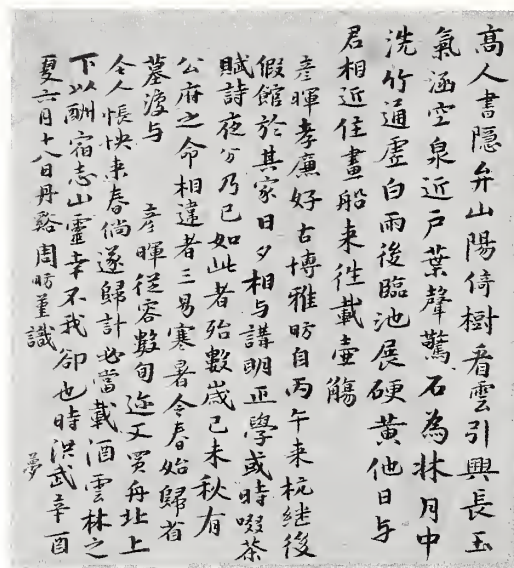 高人書隱弁山陽倚樹看雲引興長玉
氣涵空泉近戶葉聲驚石為牀月中
洗竹通虛白雨後臨池展硬黃他日与
君相近住畫船来往載壺觴
彦暉孝廉好古博雅昉自丙午来杭継後
假館於其家日夕相与講明正學或時啜茶
賦詩夜分乃已如此者殆數歲己未秋有
公府之命相違者三易寒暑今春始歸省
墓渡与 彦暉從容數旬迩又買舟北上
令人悵怏来春倘遂歸計必當載酒雲林之
下以酬宿志山靈幸不我卻也時洪武辛酉
夏六月十八日丹谿周昉菫識
夢